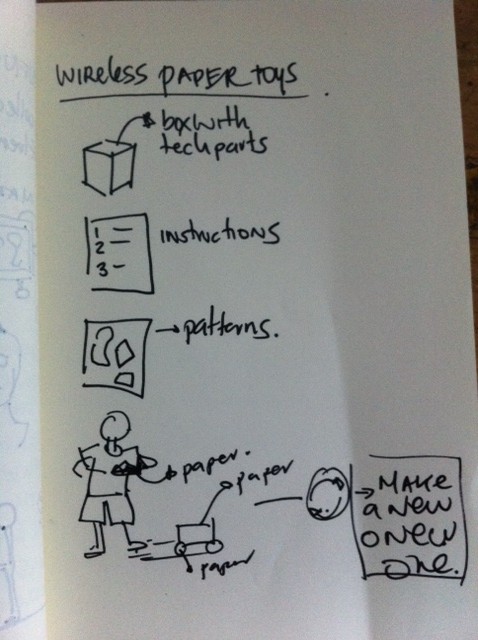 WIRELESS PAPER TOYS
box with
tech parts
1
2
3
INSTRUCTIONS
patterns.
paper.
paper
paper
MAKE
a NEW
O NEW
ONE.